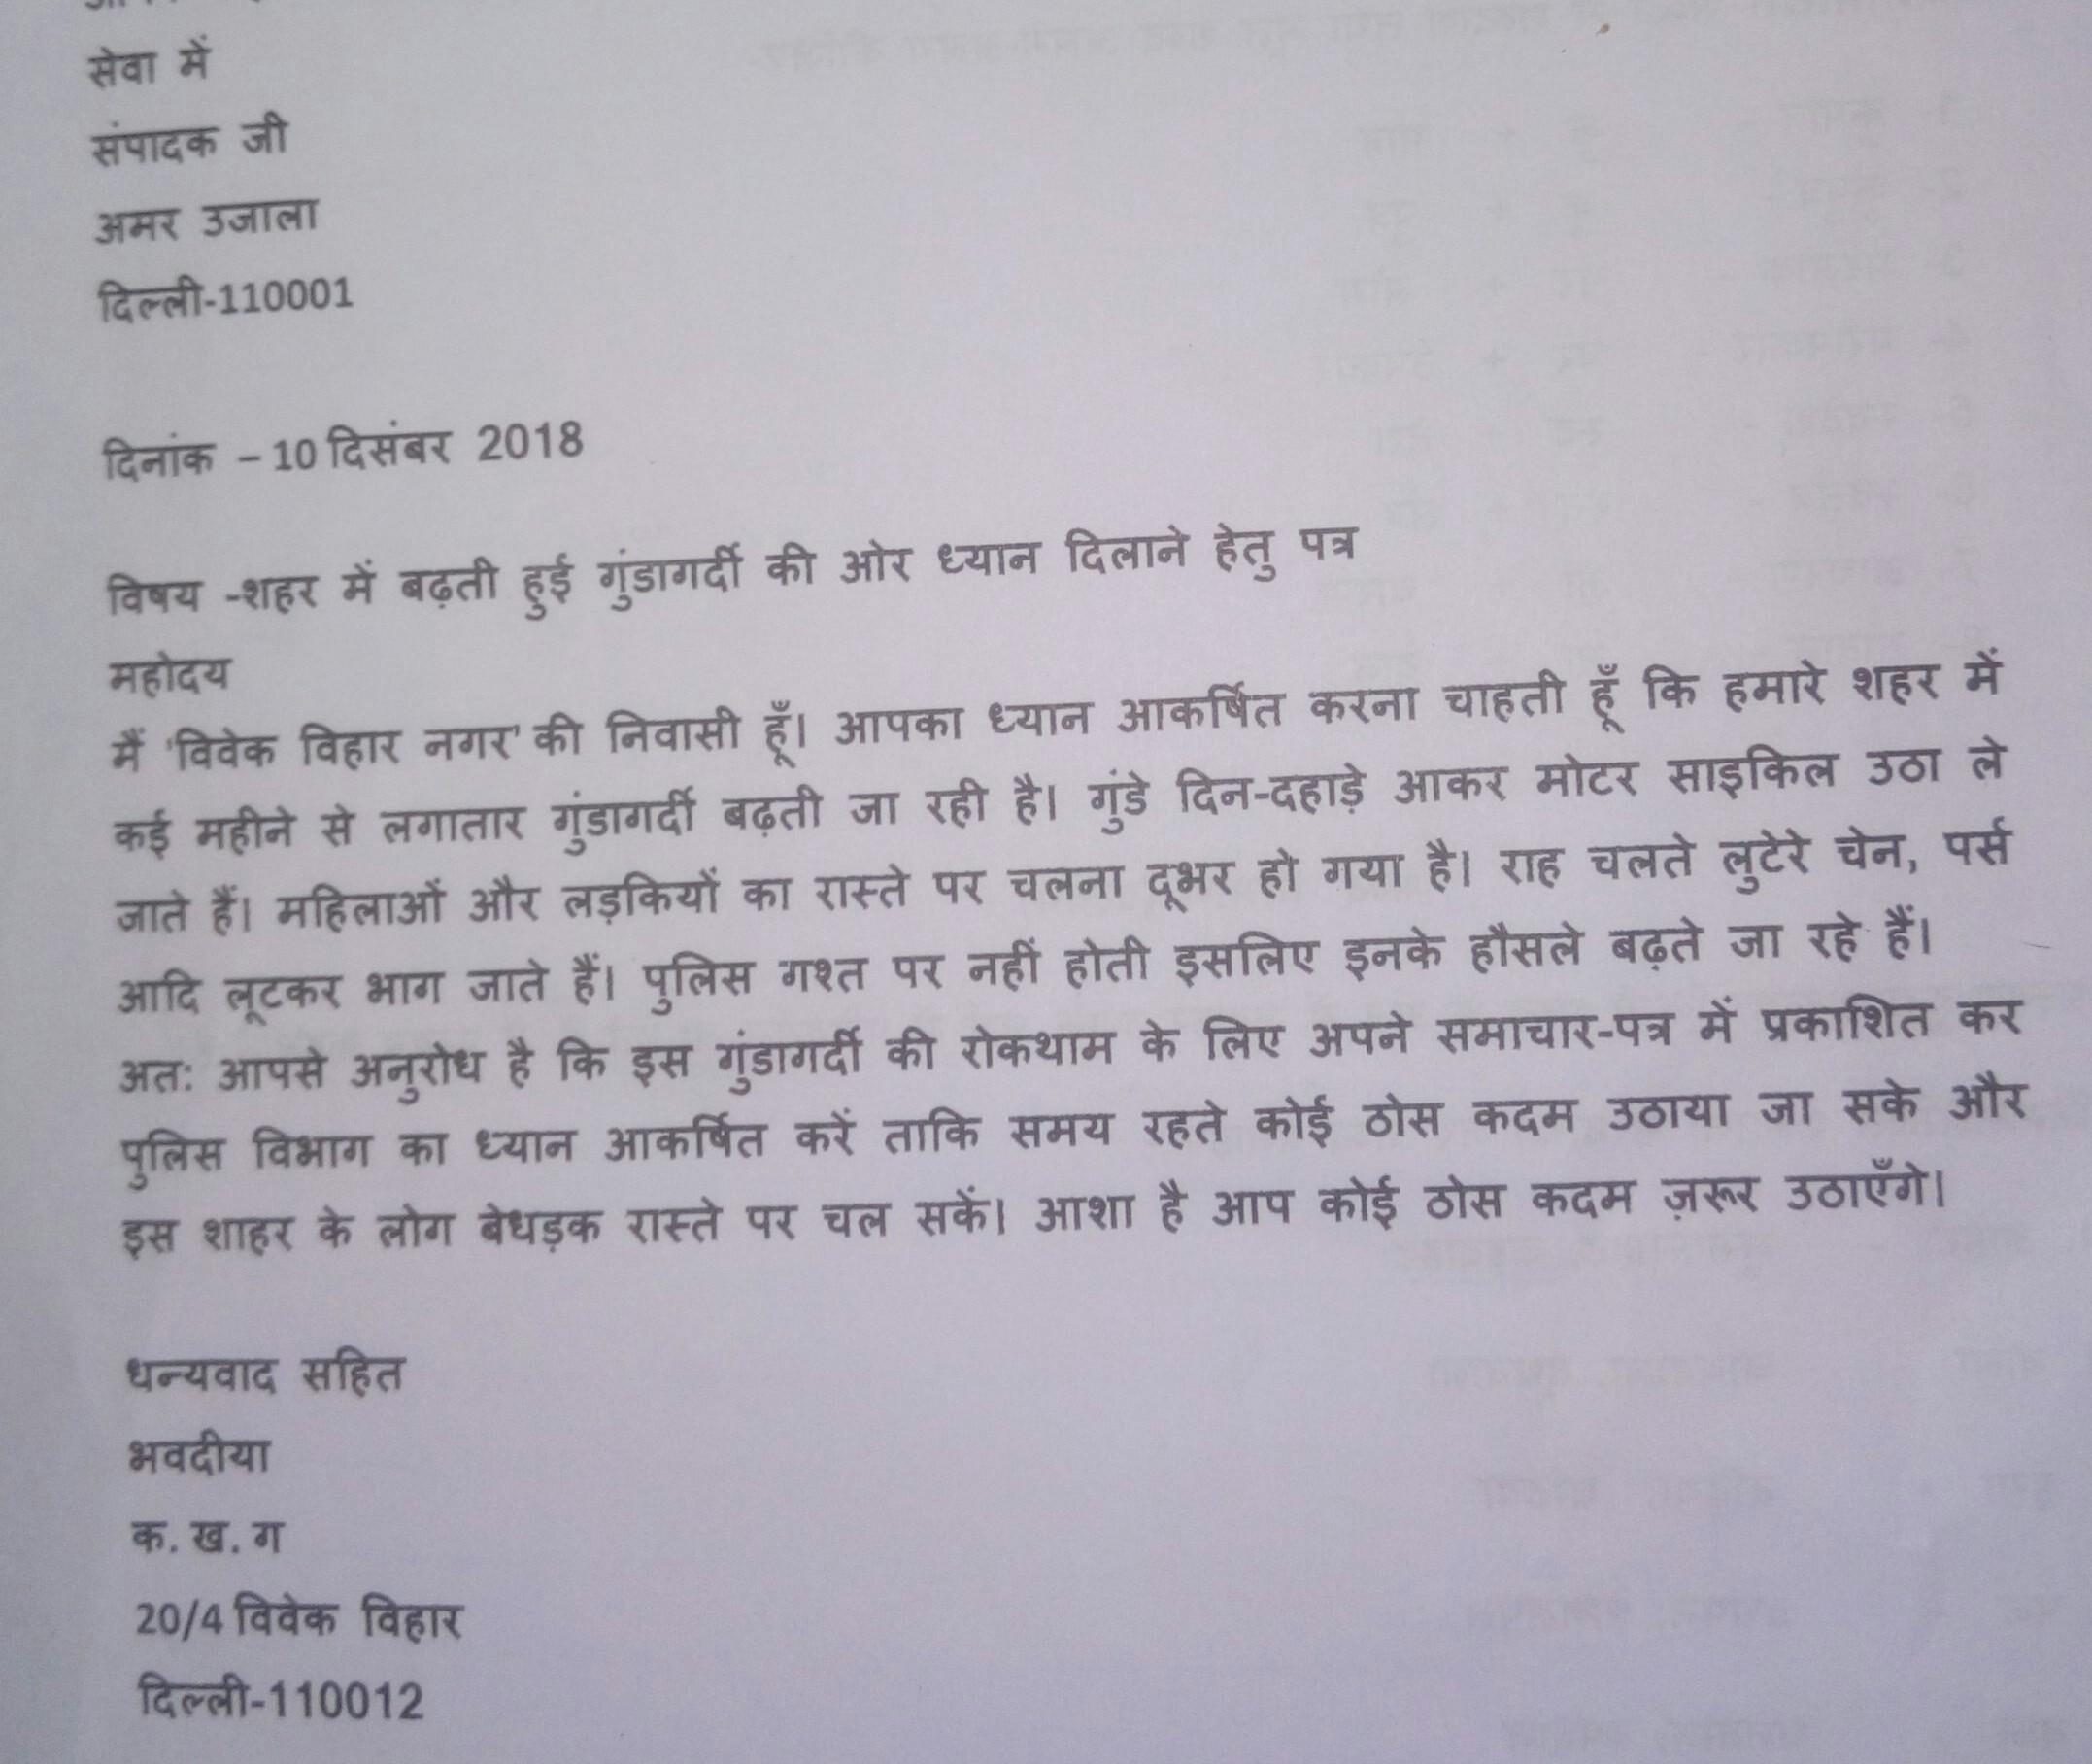 सेवा में
संपादक जी
अमर उजाला
दिल्ली-110001
दिनांक – 10 दिसंबर 2018
विषय -शहर में बढ़ती हुई गुंडागर्दी की ओर ध्यान दिलाने हेतु पत्र
महोदय
मैं 'विवेक विहार नगर' की निवासी हूँ। आपका ध्यान आकर्षित करना चाहती हूँ कि हमारे शहर में
कई महीने से लगातार गुंडागर्दी बढ़ती जा रही है। गुंडे दिन-दहाड़े आकर मोटर साइकिल उठा ले
जाते हैं। महिलाओं और लड़कियों का रास्ते पर चलना दूभर हो गया है। राह चलते लुटेरे चेन, पर्स
आदि लूटकर भाग जाते हैं। पुलिस गश्त पर नहीं होती इसलिए इनके हौसले बढ़ते जा रहे हैं।
अतः आपसे अनुरोध है कि इस गुंडागर्दी की रोकथाम के लिए अपने समाचार-पत्र में प्रकाशित कर
पुलिस विभाग का ध्यान आकर्षित करें ताकि समय रहते कोई ठोस कदम उठाया जा सके और
इस शाहर के लोग बेधड़क रास्ते पर चल सकें। आशा है आप कोई ठोस कदम ज़रूर उठाएँगे।
धन्यवाद सहित
भवदीया
क. ख. ग
20/4 विवेक विहार
दिल्ली-110012